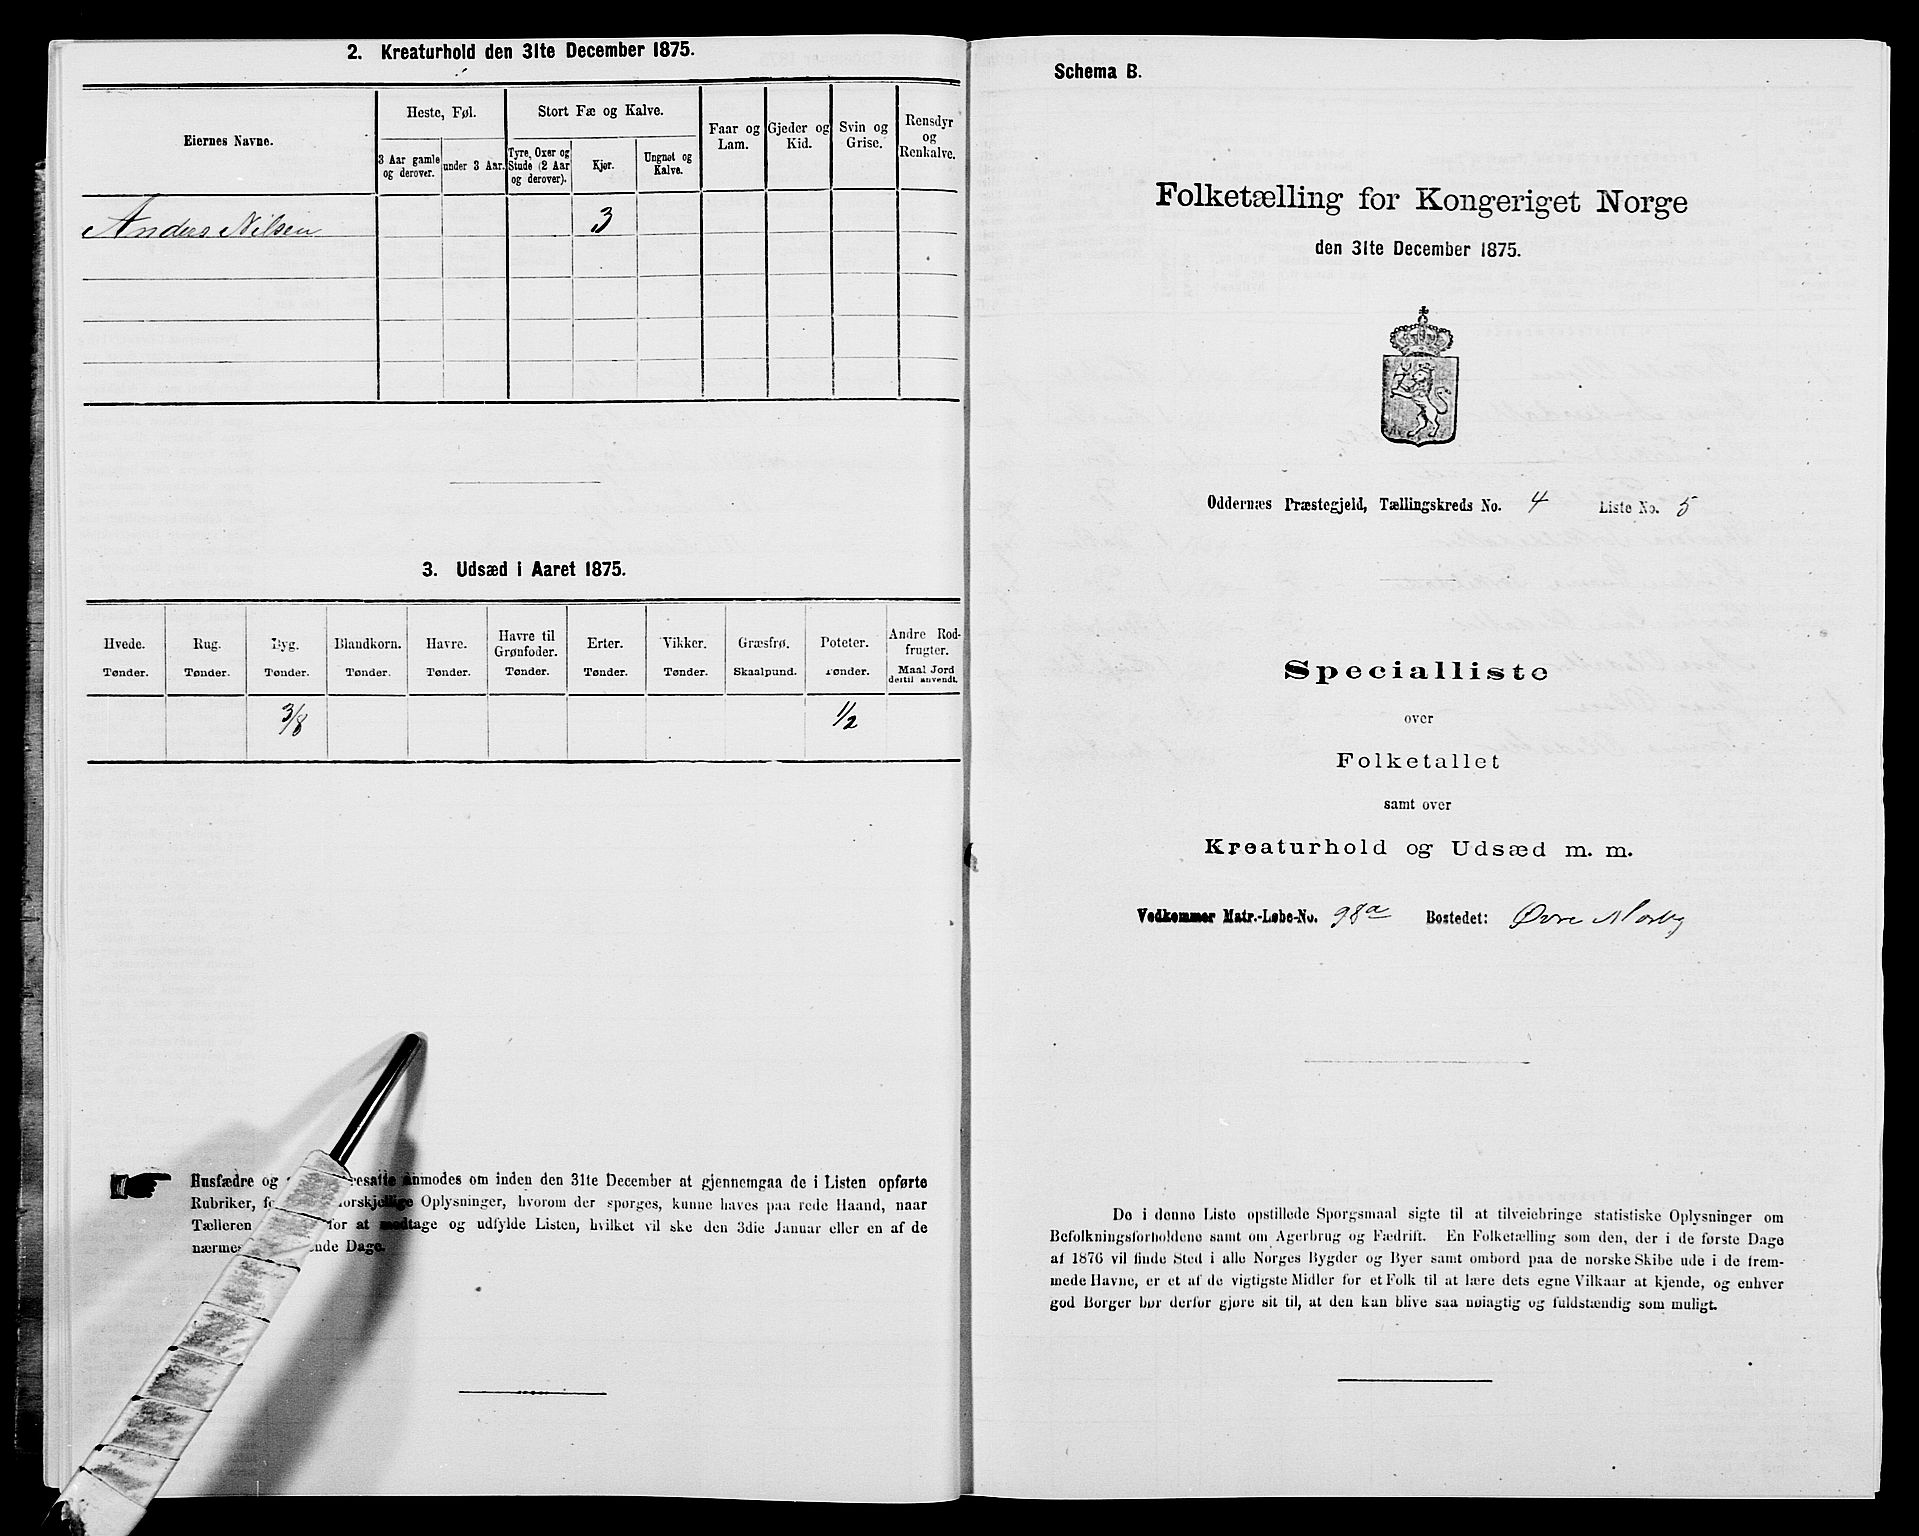 2. Kreaturhold den 31te December 1875.
Eiernes Navne.
Heste, Føl.
Stort Fæ og Kalve.
Faar og Lam.
Gjeder og Kid.
Svin og Grise.
Rensdyr og Renkalve.
3 Aar gamle og derover.
under 3 Aar.
Tyre, Oxer og Stude (2 Aar og derover).
Kjør.
Ungnøt og Kalve.
Anders Nilsen 3
3. Udsæd i Aaret 1875.
Hvede. Rug. Byg. Blandkorn. Havre. Havre til Grønfoder. Erter. Vikker. Græsfrø. Poteter. Andre Rodfrugter.
Tønder. Tønder. Tønder. Tønder. Tønder. Tønder. Tønder. Tønder. Skaalpund. Tønder. Maal Jord dertil anvendt.
3/8 1/2
Husfædre og anmodes om inden den 31te December at gjennemgaa de i Listen opførte
Rubriker, forskjellige Oplysninger, hvorom der spørges, kunne haves paa rede Haand, naar
Tælleren for at modtage og udfylde Listen, hvilket vil ske den 3die Januar eller en af de
Dage.
Schema B.
Folketælling for Kongeriget Norge
den 31te December 1875.
Oddernæs Præstegjeld, Tællingskreds No. 4 Liste No. 5
Specialliste
over
Folketallet
samt over
Kreaturhold og Udsæd m. m.
Vedkommer Matr.-Løbe-No. 98a Bostedet: Øvre Mosby
De i denne Liste opstillede Spørgsmaal sigte til at tilveiebringe statistiske Oplysninger om
Befolkningsforholdene samt om Agerbrug og Fædrift. En Folketælling som den, der i de første Dage
af 1876 vil finde Sted i alle Norges Bygder og Byer samt ombord paa de norske Skibe ude i de frem-
mede Havne, er et af de vigtigste Midler for et Folk til at lære dets egne Vilkaar at kjende, og enhver
god Borger bør derfor gjøre sit til, at den kan blive saa nøiagtig og fuldstændig som muligt.